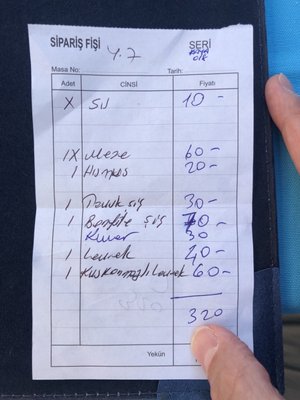 SİPARİŞ FİŞİ 4.7 SERİ
Masa No: Tarih:
Adet CİNSİ Fiyatı
X SU 10 -
1X Meze 60 -
1 Humus 20 -
1 Tavuk şiş 30 -
1 şiş 70 -
30
1 Levrek 40 -
1 Levrek 60 -
320
Yekün